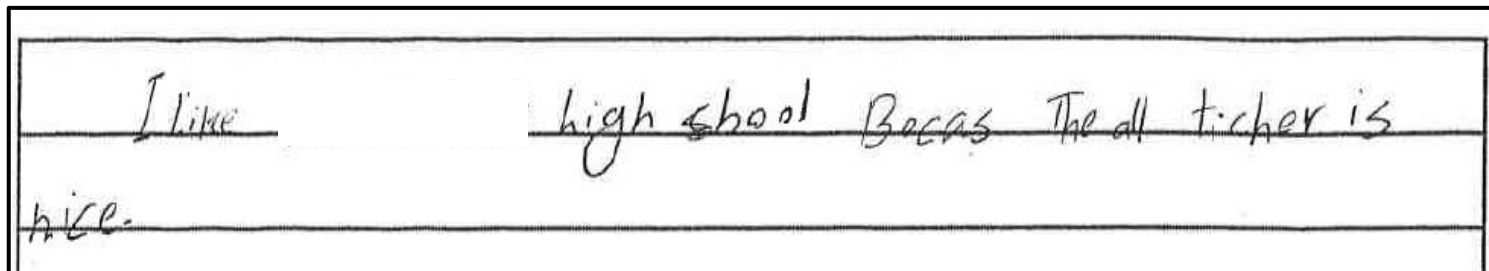 I like high shool Bocas The all ticher is
nice.